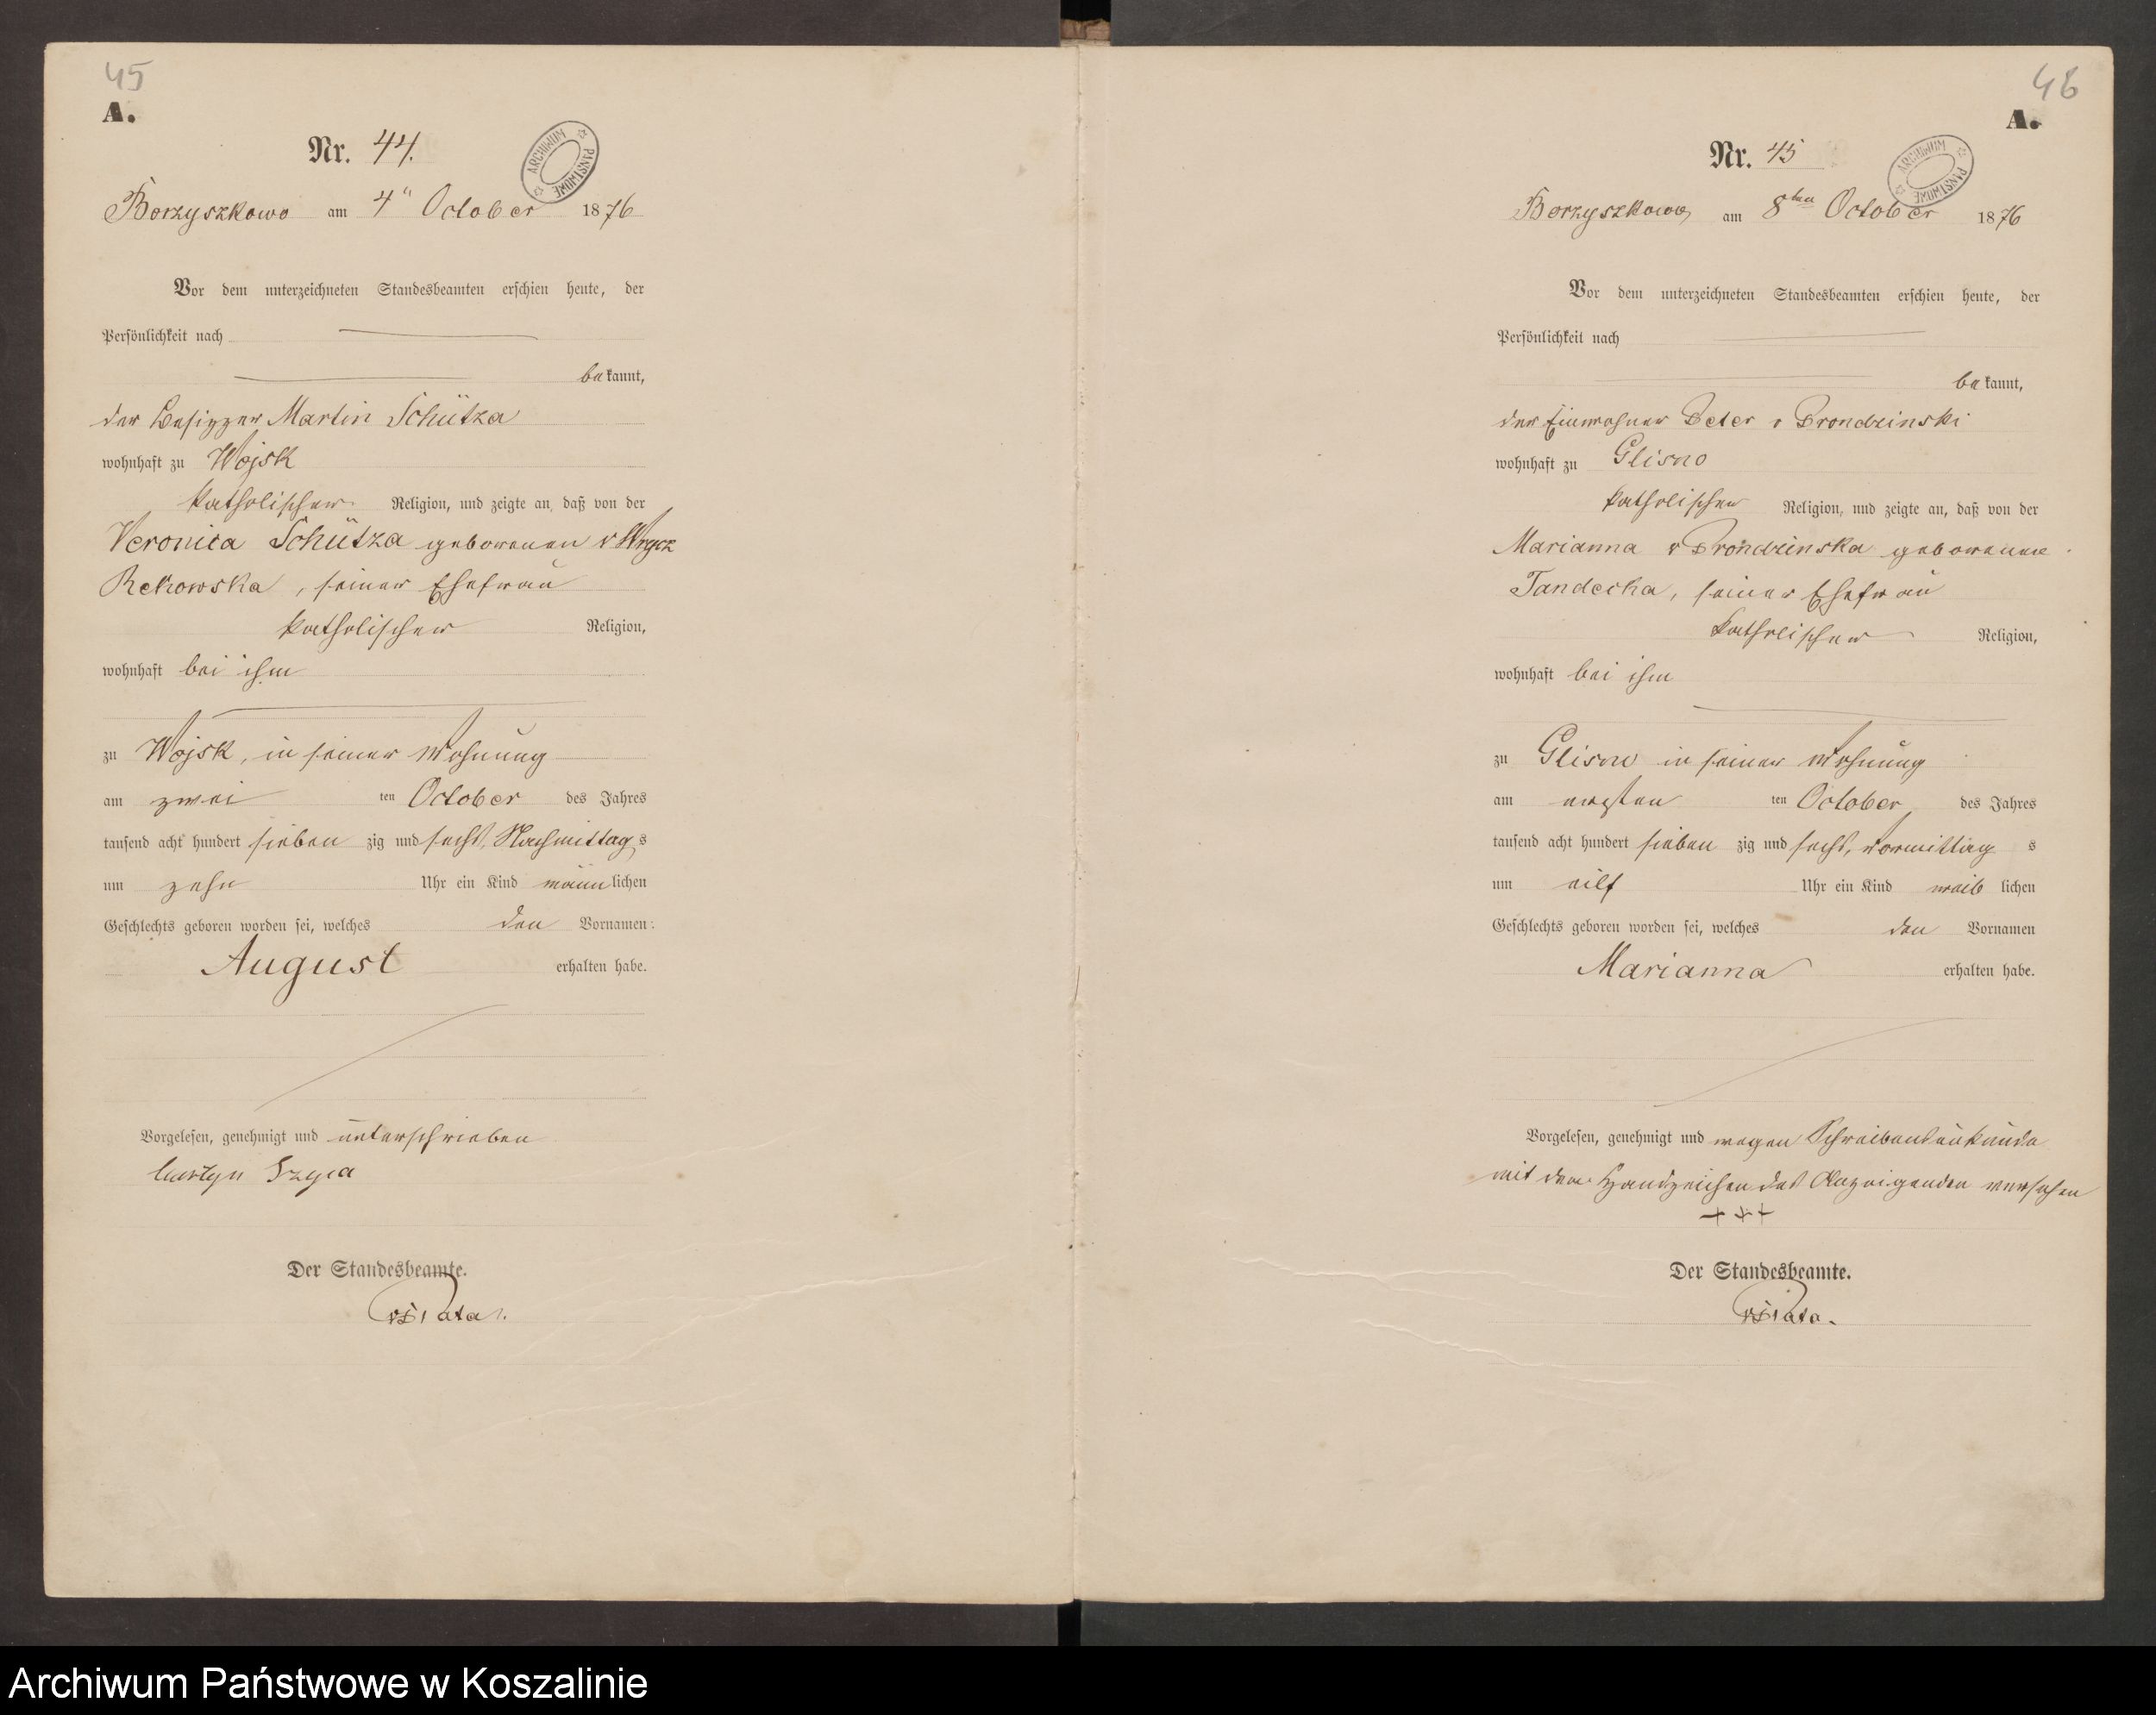 45
A.
Nr. 44.
ARCHIWUM PAŃSTWOWE
Borzyszkowo am 4" October 1876
Vor dem unterzeichneten Standesbeamten erschien heute, der
Persönlichkeit nach
bekannt,
der Besitzer Martin Schütza
wohnhaft zu Wojsk
katholischer Religion, und zeigte an, daß von der
Veronica Schütza geborenen v Wrycz
Rekowska, seiner Ehefrau
katholischer Religion,
wohnhaft bei ihm
zu Wojsk, in seiner Wohnung
am zwei ten October des Jahres
tausend acht hundert sieben zig und sechs, Nachmittags
um zehn Uhr ein Kind männlichen
Geschlechts geboren worden sei, welches den Vornamen:
August erhalten habe.
Vorgelesen, genehmigt und unterschrieben
Der Standesbeamte.
46
A.
Nr. 45
ARCHIWUM PAŃSTWOWE
Borzyszkowo am 8ten October 1876
Vor dem unterzeichneten Standesbeamten erschien heute, der
Persönlichkeit nach
bekannt,
der Einwohner Peter v Prondzinski
wohnhaft zu Glisno
katholischer Religion, und zeigte an, daß von der
Marianna v Prondzinska geborenen
Tandecka, seiner Ehefrau
katholischer Religion,
wohnhaft bei ihm
zu Glisno in seiner Wohnung
am ersten ten October des Jahres
tausend acht hundert sieben zig und sechs, Vormittag s
um eilf Uhr ein Kind weib lichen
Geschlechts geboren worden sei, welches den Vornamen
Marianna erhalten habe.
Vorgelesen, genehmigt und wegen Schreibensunkunde
mit dem Handzeichen des Anzeigenden versehen
+++
Der Standesbeamte.
Archiwum Państwowe w Koszalinie